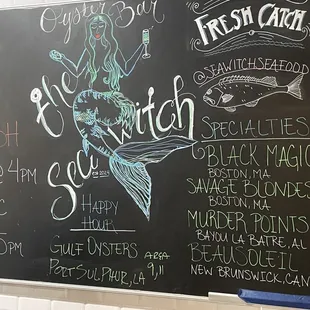 Oyster Bar
the
Sea Witch
EST 2024
SH
4PM
5PM
Happy
Hour
Gulf Oysters
Port Sulphur, LA
9,11
Fresh Catch
@SEAWITCHSEAFOOD
SPECIALTIES
BLACK MAGIC
BOSTON, MA
SAVAGE BLONDES
BOSTON, MA
MURDER POINTS
BAYOU LA BATRE, AL
BEAUSOLEIL
NEW BRUNSWICK, CAN